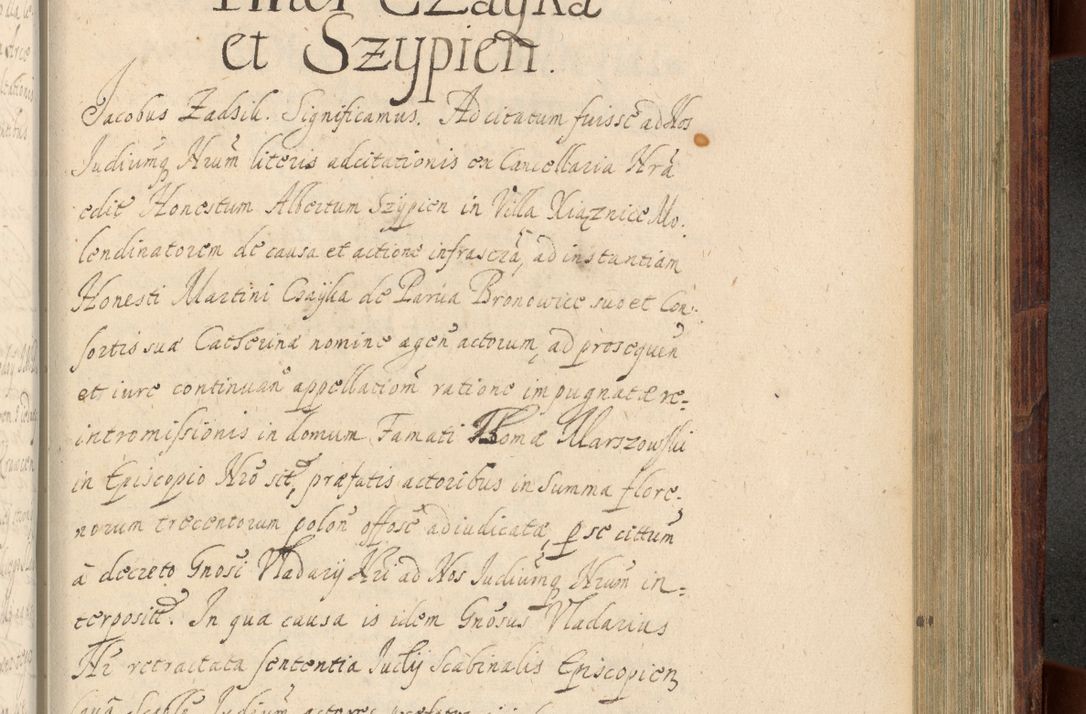 Inter Czayka
et Szypien.
Jacobus Zadsik. Significamus. Ad citatum fuisse ad Nos
Judiumq Nrum literis adcitationis ex Cancellaria Nra
edit Honestum Albertum Szypien in Villa Xiąznice Mo-
lendinatorem de causa et actione infrascra, ad instantiam
Honesti Martini Czayka de Parua Bronowice suo et Con-
sortis suæ Catherinæ nomine agen actorum, ad prosequen
et iure continuan appellatiom ratione impugnatæ re=
intromissionis in domum Famati Thomæ Marszowski
in Episcopio Nro sit, præfatis actoribus in summa flore-
norum trecentorum polon offose adiudicatæ, p se cittum
a decreto Gnosi Vladarij Nri ad Nos Judiumq Nrum in=
terposit. In qua causa is idem Gnosus Vladarius
Nr retractata sententia Judij Scabinalis Episcopien